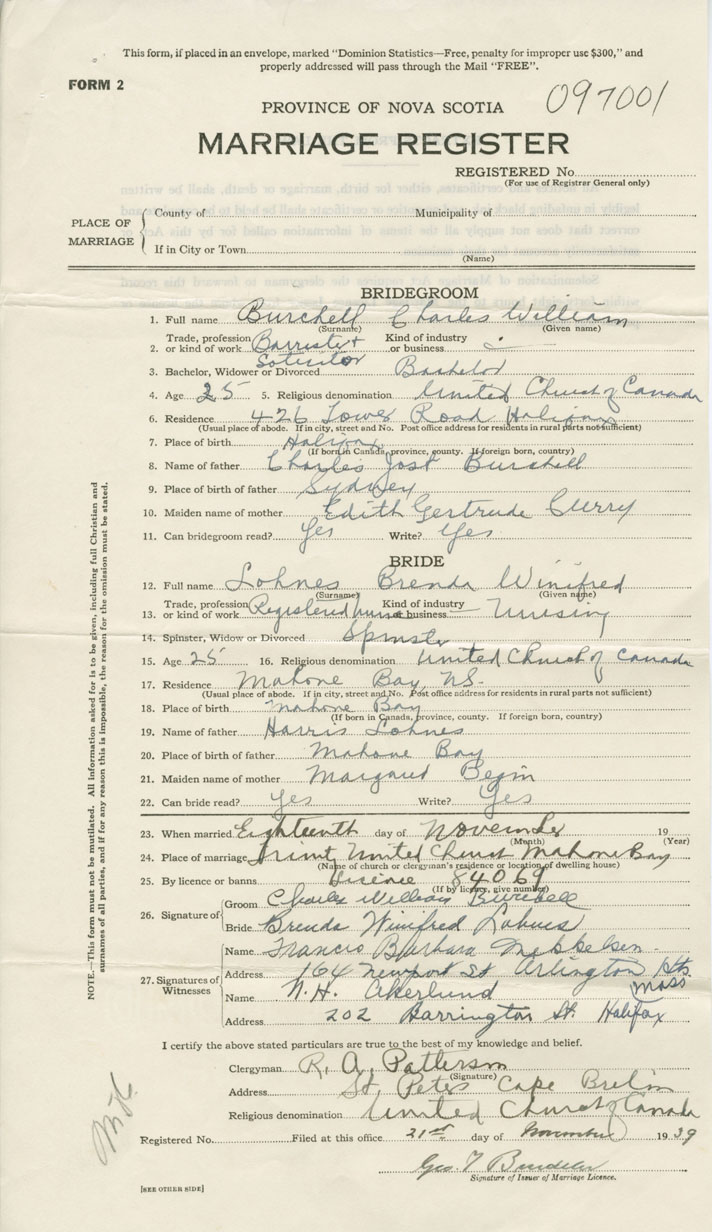 This form, if placed in an envelope, marked "Dominion Statistics—Free, penalty for improper use $300," and
properly addressed will pass through the Mail "FREE".
FORM 2
097001
PROVINCE OF NOVA SCOTIA
MARRIAGE REGISTER
REGISTERED No.
(For use of Registrar General only)
PLACE OF MARRIAGE
County of
Municipality of
If in City or Town
(Name)
BRIDEGROOM
1. Full name Burchell Charles William
(Surname) (Given name)
2. Trade, profession or kind of work Barrister + Solicitor Kind of industry or business
3. Bachelor, Widower or Divorced Bachelor
4. Age 25 5. Religious denomination United Church of Canada
6. Residence 426 Tower Road Halifax
(Usual place of abode. If in city, street and No. Post office address for residents in rural parts not sufficient)
7. Place of birth Halifax
(If born in Canada, province, county. If foreign born, country)
8. Name of father Charles Jost Burchell
9. Place of birth of father Sydney
10. Maiden name of mother Edith Gertrude Curry
11. Can bridegroom read? Yes Write? Yes
BRIDE
12. Full name Lohnes Brenda Winifred
(Surname) (Given name)
13. Trade, profession or kind of work Registered nurse Kind of industry or business Nursing
14. Spinster, Widow or Divorced Spinster
15. Age 25 16. Religious denomination United Church of Canada
17. Residence Mahone Bay, N.S.
(Usual place of abode. If in city, street and No. Post office address for residents in rural parts not sufficient)
18. Place of birth Mahone Bay
(If born in Canada, province, county. If foreign born, country)
19. Name of father Harris Lohnes
20. Place of birth of father Mahone Bay
21. Maiden name of mother Margaret
22. Can bride read? Yes Write? Yes
23. When married Eighteenth day of November 19
(Month) (Year)
24. Place of marriage Trinity United Church Mahone Bay
(Name of church or clergyman's residence or location of dwelling house)
25. By licence or banns Licence 84069
(If by licence, give number)
26. Signature of
Groom Charles William Burchell
Bride Brenda Winifred Lohnes
27. Signatures of Witnesses
Name Francis Barbara Mikkelsen
Address 164 Newport St Arlington Hts. Mass
Name N. H. Akerlund
Address 202 Barrington St. Halifax
I certify the above stated particulars are true to the best of my knowledge and belief.
Clergyman R. A. Patterson
(Signature)
Address St. Peters Cape Breton
Religious denomination United Church of Canada
Registered No. Filed at this office 21st day of November 1939
Geo. T
Signature of Issuer of Marriage Licence.
[SEE OTHER SIDE]
NOTE.—This form must not be mutilated. All information asked for is to be given, including full Christian and
surnames of all parties, and if for any reason this is impossible, the reason for the omission must be stated.